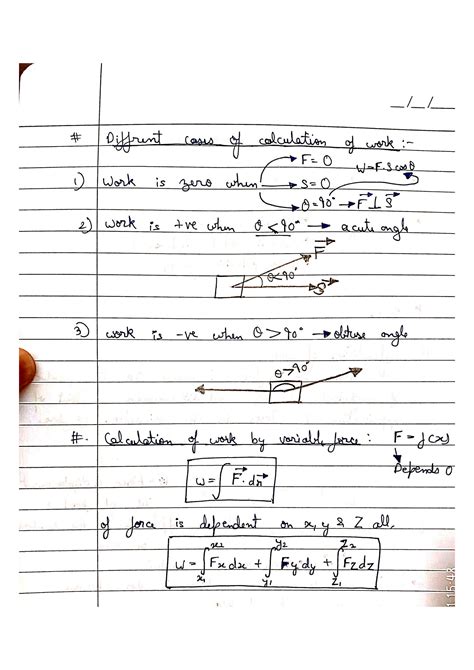 _/_/_
# Diffrent cases of calculation of work :-
F = 0 W = F.S cosθ
1) Work is zero when → S = 0
θ = 90° → F⃗ ⊥ S⃗
2) work is +ve when θ < 90° → acute angle
F⃗
θ<90°
S⃗
3) work is -ve when θ > 90° → obtuse angle
θ>90°
#. Calculation of work by variable force : F = f(x)
Depends o
W = ∫ F⃗ . dr⃗
of force is dependent on x, y & Z all,
W = ∫_{x1}^{x2} Fx dx + ∫_{y1}^{y2} Fy dy + ∫_{Z1}^{Z2} FZ dZ